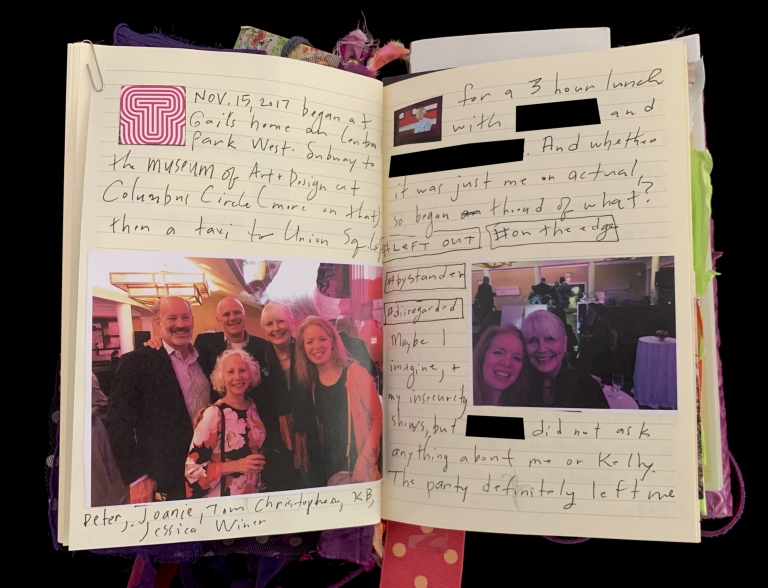 T
NOV. 15, 2017 began at
Gail's home on Central
Park West. Subway to
the museum of Art + Design at
Columbus Circle (more on that)
then a taxi to Union Sq.
Peter, Joanie, Tom Christopher, KB,
Jessica Winer
for a 3 hour lunch
with and
. And whether
it was just me or actual,
so began thread of what?
#LEFT OUT #on the edge
#bystander
#disregarded
Maybe I
imagine, +
my insecurity
shows, but did not ask
anything about me or Kelly.
The party definitely left me